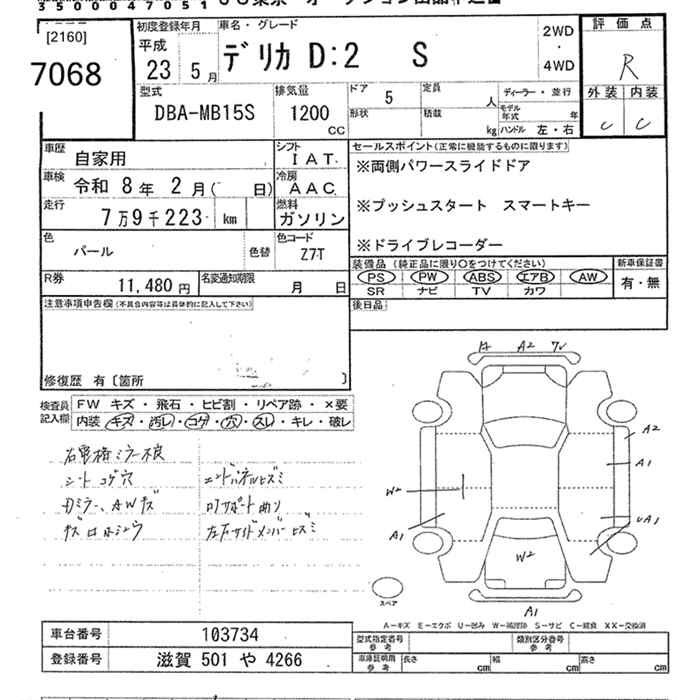 35000047051
[2160]
7068
初度登録年月
平成
23 5月
車名・グレード
デリカ D:2 S
2WD
・
4WD
評価点
R
外装 内装
C C
型式
DBA-MB15S
排気量
1200
CC
ドア
5
定員
人
形状
積載
kg
ディーラー・並行
モデル年式
年
ハンドル 左・右
車歴
自家用
シフト
IAT
車検
令和 8年 2月( 日)
冷房
AAC
走行
7万9千223 km
燃料
ガソリン
色
パール
色替
色コード
Z7T
R券
11,480円
名変通知期限
月 日
セールスポイント(正常に機能するものに限ります)
※両側パワースライドドア
※プッシュスタート スマートキー
※ドライブレコーダー
装備品(純正品に限り〇をつけてください)
PS PW ABS エアB AW
SR ナビ TV カワ
新車保証書
有・無
後日品
注意事項申告欄(不具合内容等は具体的に記入して下さい)
修復歴 有〔箇所 〕
検査員
記入欄
FW キズ・飛石・ヒビ割・リペア跡・×要
内装 キズ・汚レ・コゲ・穴・スレ・キレ・破レ
シート コゲ穴
A2
A2
A1
W2
A1
UA1
W2
A1
スペア
A-キズ E-エクボ U-凹み W-補修跡 S-サビ C-腐食 XX-交換済
車台番号
103734
登録番号
滋賀 501 や 4266
型式指定番号
参考
類別区分番号
参考
車庫証明用
参考
長さ cm
幅 cm
高さ cm